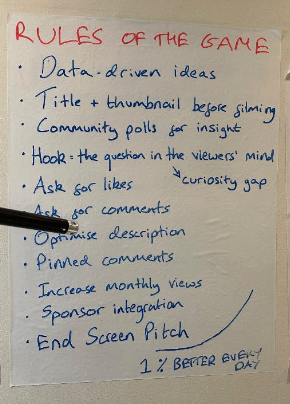 RULES OF THE GAME
· Data-driven ideas
· Title + thumbnail before filming
· Community polls for insight
· Hook = the question in the viewers' mind
↘ curiosity gap
· Ask for likes
· Ask for comments
· Optimise description
· Pinned comments
· Increase monthly views
· Sponsor integration
· End Screen Pitch
1% BETTER EVERY
DAY